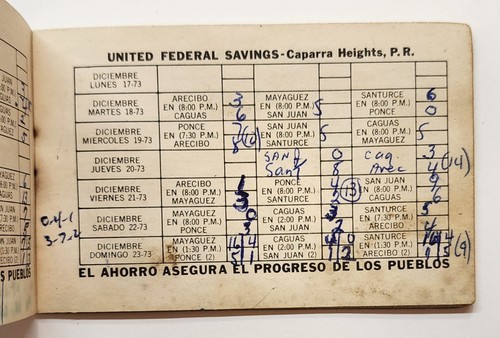 UNITED FEDERAL SAVINGS-Caparra Heights, P.R.
DICIEMBRE
LUNES 17-73
DICIEMBRE
MARTES 18-73
ARECIBO 3
EN (8:00 P.M.)
CAGUAS 6
MAYAGUEZ
EN (8:00 P.M.) 5
SAN JUAN
SANTURCE 6
EN (8:00 P.M.)
PONCE 0
DICIEMBRE
MIERCOLES 19-73
PONCE
EN (7:30 P.M.)
ARECIBO 8
SAN JUAN
EN (8:00 P.M.) 5
SANTURCE
CAGUAS
EN (8:00 P.M.) 5
MAYAGUEZ
DICIEMBRE
JUEVES 20-73
SANJ 0
Sant 8
Cag. 3
Arec 4 (14)
DICIEMBRE
VIERNES 21-73
ARECIBO 1
EN (8:00 P.M.)
MAYAGUEZ 3
PONCE 4
EN (8:00 P.M.) (13)
SANTURCE
SAN JUAN 9
EN (8:00 P.M.)
CAGUAS 6
DICIEMBRE
SABADO 22-73
MAYAGUEZ 0
EN (8:00 P.M.)
PONCE 3
CAGUAS 3
EN (2:00 P.M.)
SAN JUAN 2
SANTURCE 5
EN (7:30 P.M.)
ARECIBO 4
DICIEMBRE
DOMINGO 23-73
MAYAGUEZ 16 4
EN (1:30 P.M.)
PONCE (2) 5 1
CAGUAS 4 0
EN (2:00 P.M.)
SAN JUAN (2) 1 2
SANTURCE 16 4
EN (1:30 P.M.) (9)
ARECIBO (2) 1 5
3-7-2
EL AHORRO ASEGURA EL PROGRESO DE LOS PUEBLOS